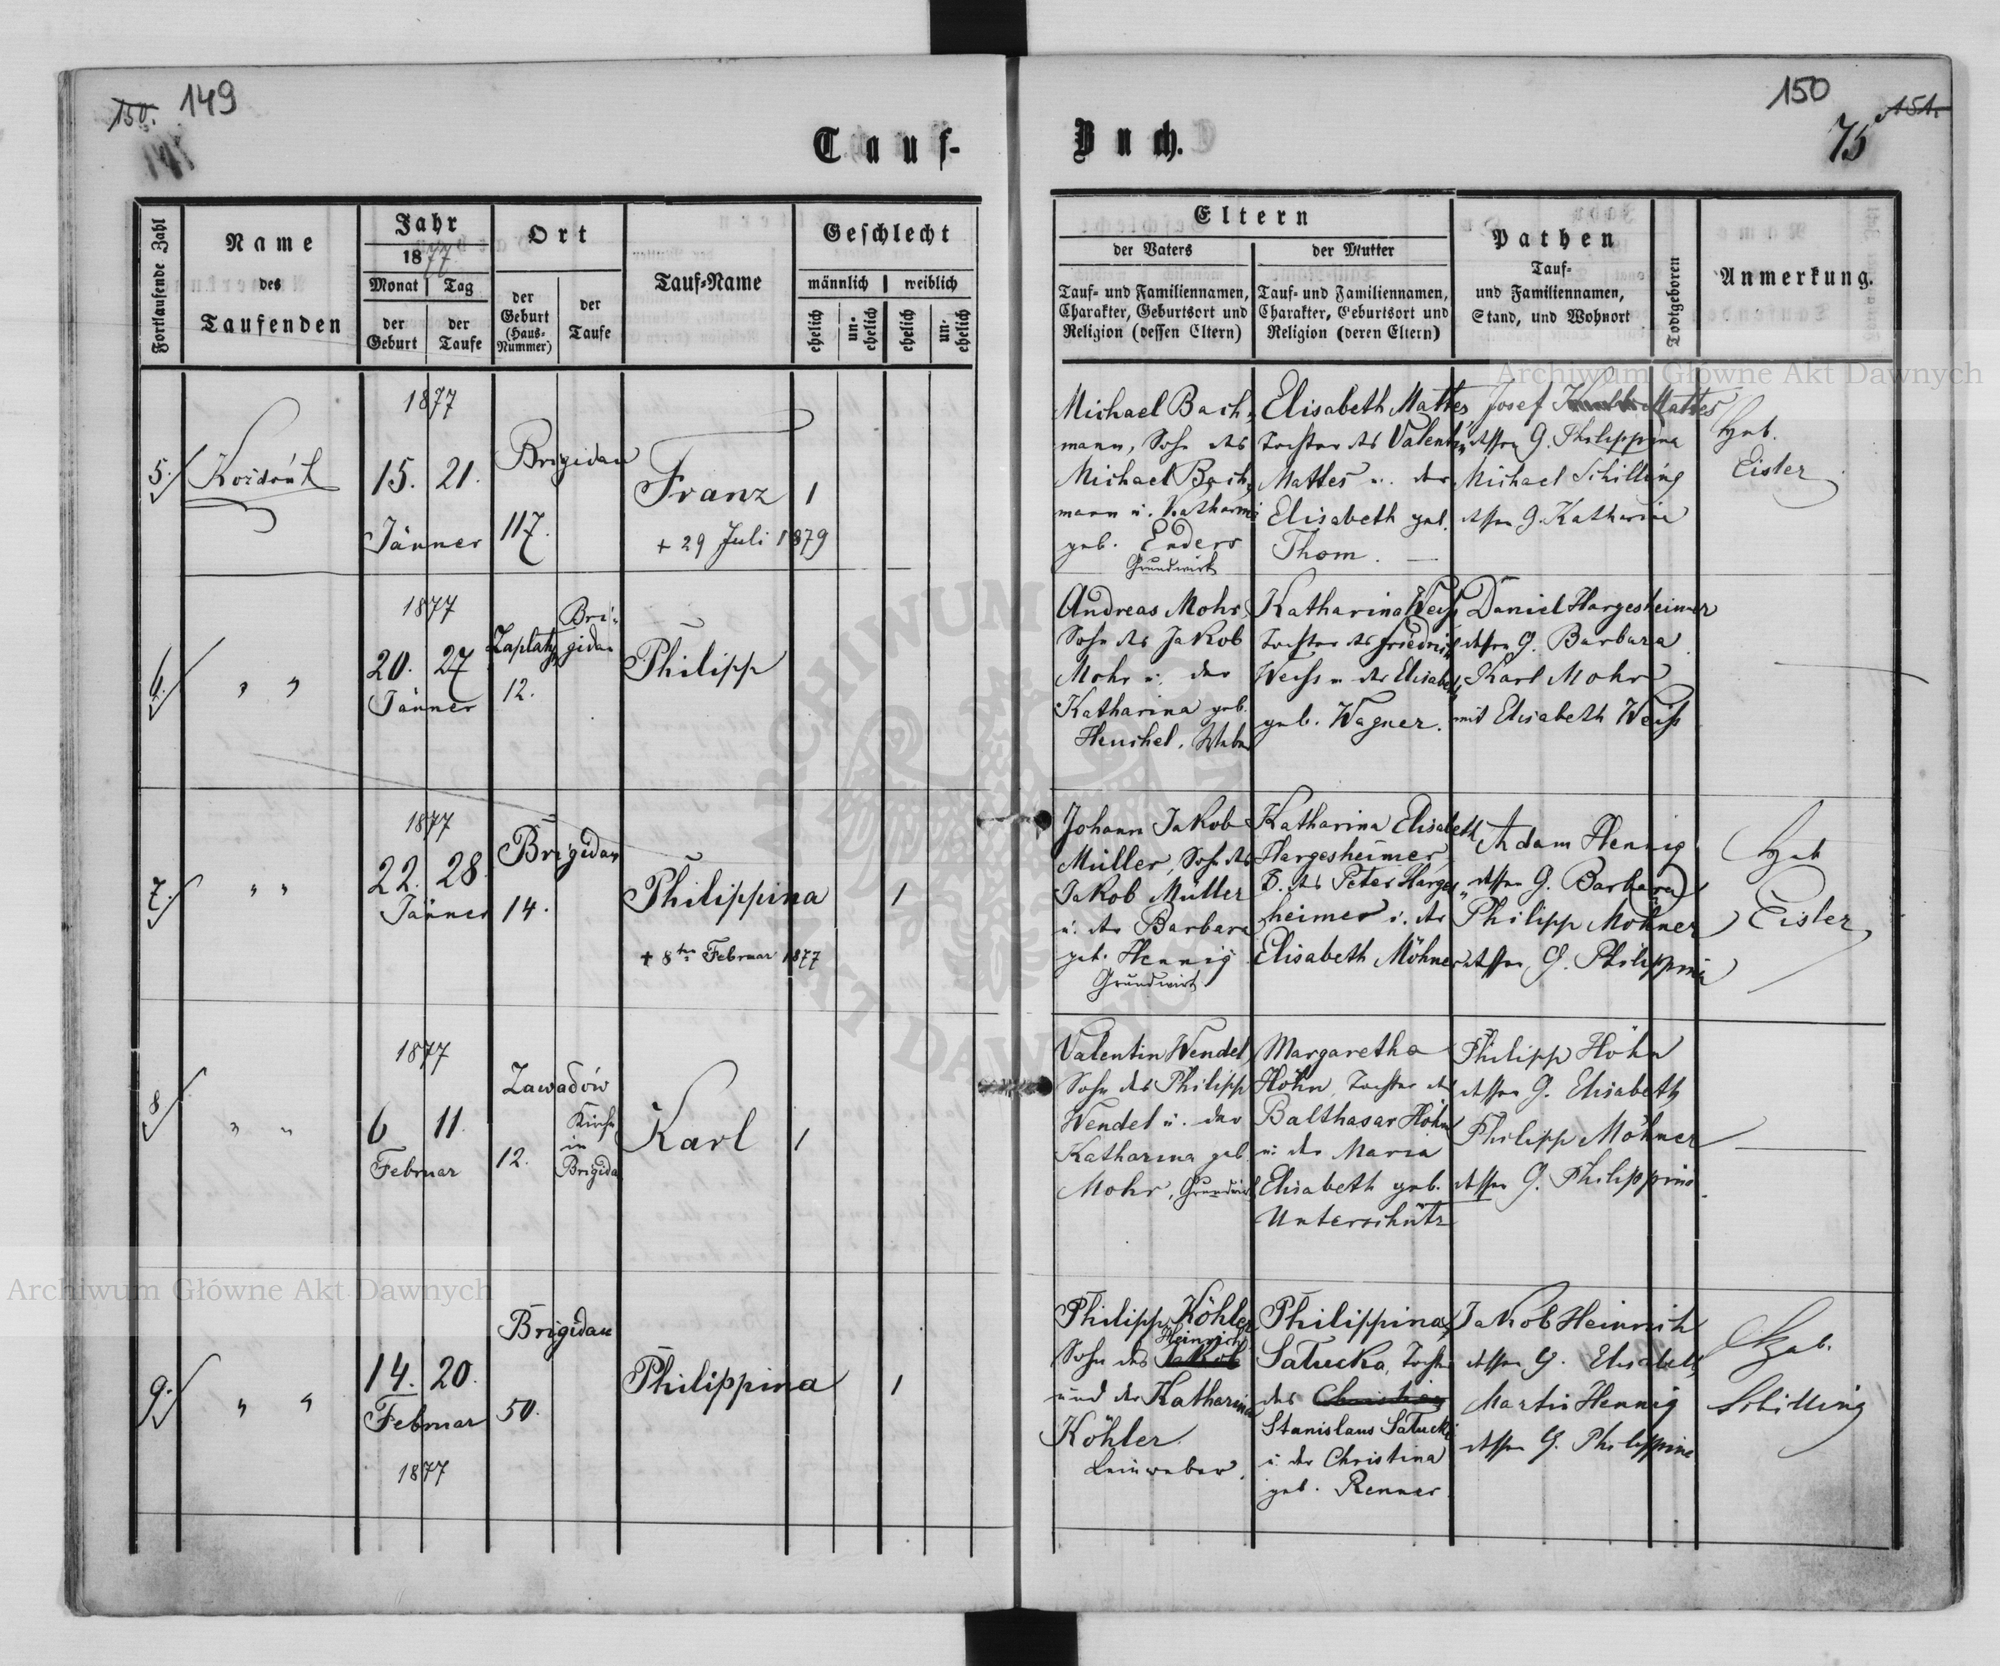 150. 149
Tauf-
Fortlaufende Zahl
Name
des
Taufenden
Jahr
1877
Monat Tag
der Geburt
der Taufe
Ort
der
Geburt
(Haus-
Nummer)
der
Taufe
Tauf-Name
Geschlecht
männlich weiblich
ehelich
un-
ehelich
ehelich
un-
ehelich
1877
5. 15. 21.
Jänner
Brigidau
117.
Franz 1
+ 29 Juli 1879
1877
6. " " 20. 27
Jänner
Zaplatyn
12.
Bri-
gidau
Philipp
1877
7. " " 22. 28.
Jänner
Brigidau
14.
Philippina 1
+ 8ten Februar 1877
1877
8 " " 6 11.
Februar
Zawadów
12.
Kirche
in
Brigidau
Karl 1
9. " " 14. 20.
Februar
1877
Brigidau
50.
Philippina 1
150
151.
75
Buch.
Eltern
der Vaters
Tauf- und Familiennamen,
Charakter, Geburtsort und
Religion (dessen Eltern)
der Mutter
Tauf- und Familiennamen,
Charakter, Geburtsort und
Religion (deren Eltern)
Pathen
Tauf-
und Familiennamen,
Stand, und Wohnort
Todtgeboren
Anmerkung.
Michael Bach-
mann, Sohn des
Michael Bach-
mann u. Katharina
geb. Enders
Grundwirt
Elisabeth Mattes
Tochter des Valentin
Mattes u. der
Elisabeth geb.
Thom.
Josef Mattes
dessen G. Philippina
Michael Schilling
dessen G. Katharina
Heb.
Eisler
Andreas Mohr,
Sohn des Jakob
Mohr u. der
Katharina geb.
Henschel, Weber
Katharina Weiß
Tochter des Friedrich
Weiss u der Elisabeth
geb. Wagner.
Daniel Hargesheimer
dessen G. Barbara
Karl Mohr
mit Elisabeth Weiß
Johann Jakob
Müller, Sohn des
Jakob Müller
u. der Barbara
geb. Hennig
Grundwirt
Katharina Elisabeth
Hargesheimer
T. des Peter Harges-
heimer u. der
Elisabeth Möhner
Adam Hennig
dessen G. Barbara
Philipp Möhner
dessen G. Philippina
Heb
Eisler
Valentin Wendel,
Sohn des Philipp
Wendel u. der
Katharina geb.
Mohr, Grundwirt
Margaretha
Höhn, Tochter des
Balthasar Höhn
u. der Maria
Elisabeth geb.
Unterschütz
Philipp Höhn
dessen G. Elisabeth
Philipp Möhner
dessen G. Philippina
Philipp Köhler
Heinrich
Sohn des Jakob
und der Katharina
Köhler.
Leinweber.
Philippina
Satucka, Tochter
des Christian
Stanislaus Satucki
u. der Christina
geb. Renner.
Jakob Heinrich
dessen G. Elisabeth
Martin Hennig
dessen G. Philippina
Heb.
Schilling
Archiwum Główne Akt Dawnych
Archiwum Główne Akt Dawnych
ARCHIWUM GŁÓWNE AKT DAWNYCH